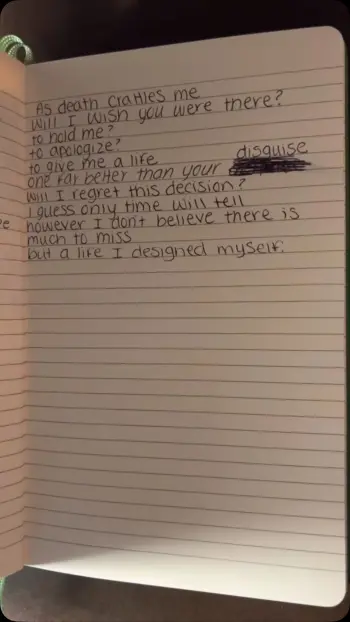 As death crattles me
will I wish you were there?
to hold me?
to apologize?
to give me a life
one far better than your disguise
will I regret this decision?
I guess only time will tell
however I don't believe there is
much to miss
but a life I designed myself.